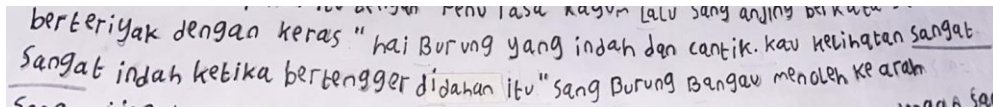 penu rasa kagum lalu sang anjing berkata
berteriyak dengan keras "hai Burung yang indah dan cantik. kau kelihatan sangat
sangat indah ketika bertengger didahan itu" sang Burung Bangau menoleh ke arah